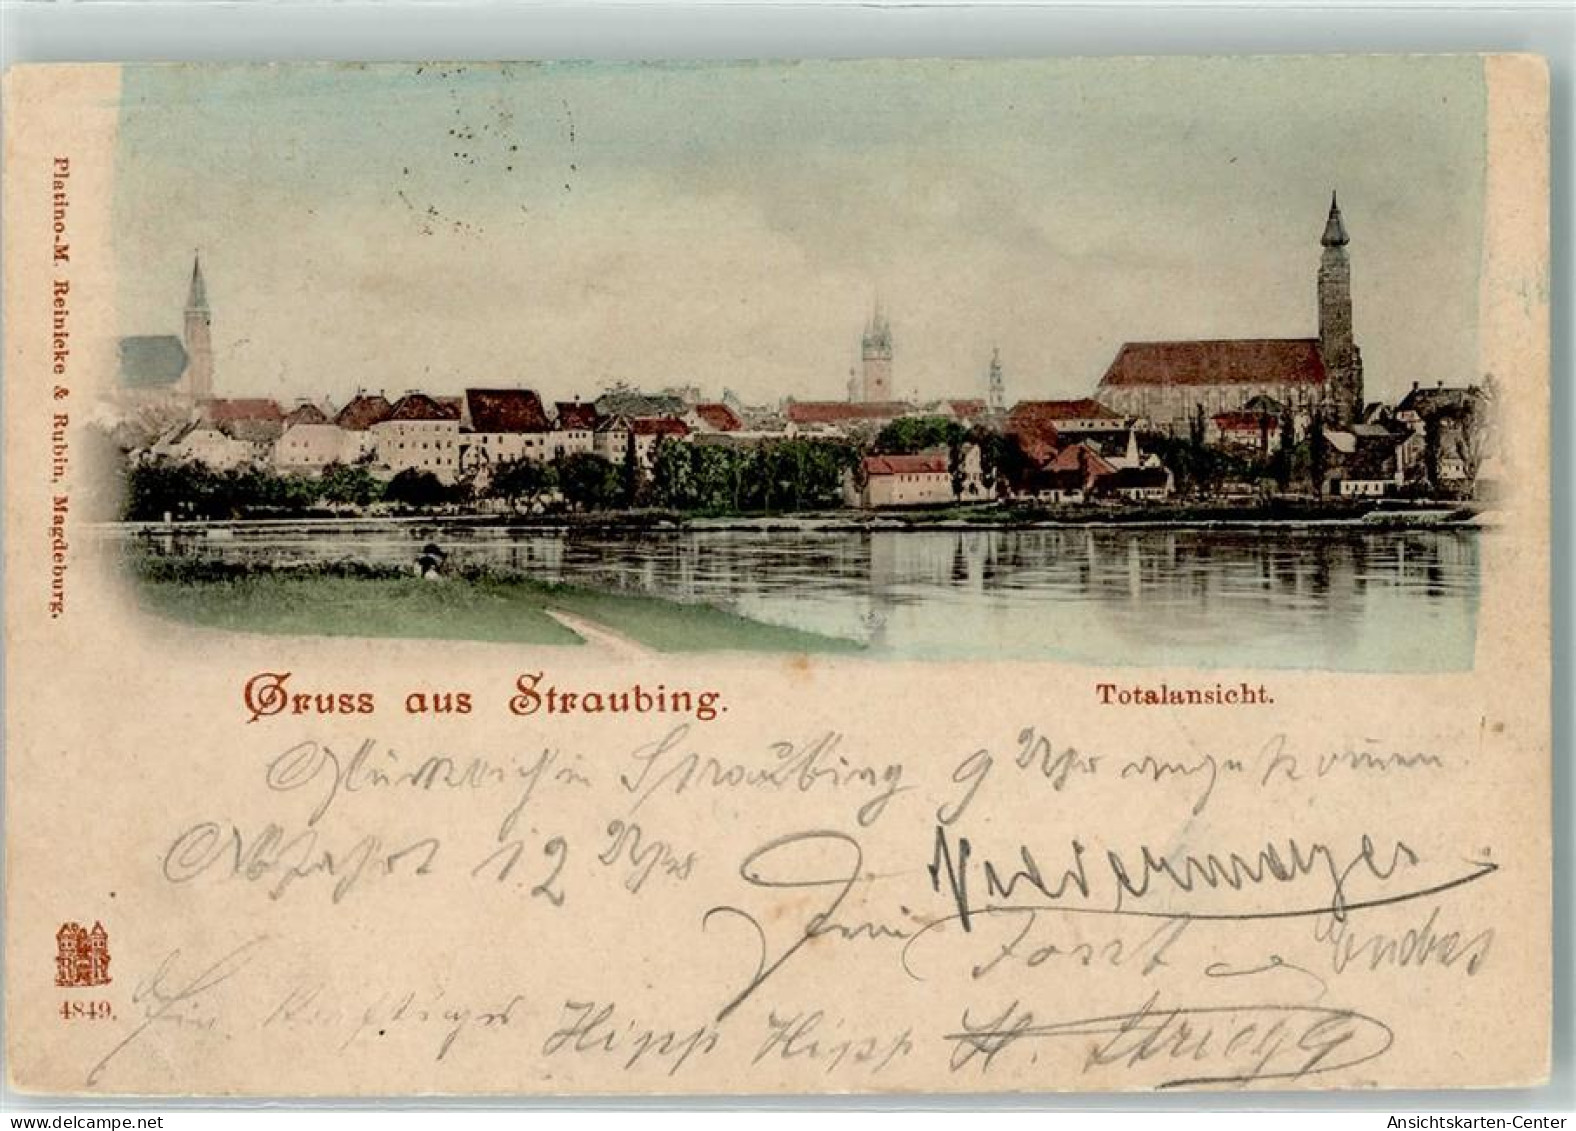 Platino-M. Reinicke & Rubin, Magdeburg.
Gruss aus Straubing.
Totalansicht.
Glücklich in Straubing 9 Uhr angekommen.
Abfahrt 12 Uhr
Niedermayer
Forst
Ein kräftiges Hipp Hipp H. Striegg
4849.
Ansichtskarten-Center